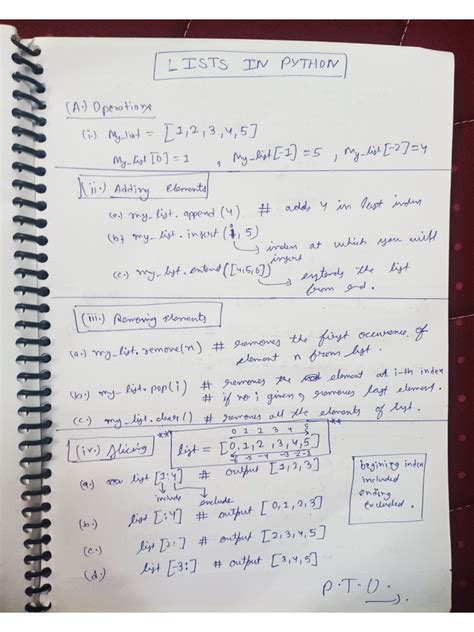 LISTS IN PYTHON
(A.) Operations
(i.) My_list = [1,2,3,4,5]
My_list[0] = 1 , My_list[-1] = 5 , My_list[-2] = 4
(ii.) Adding elements
(a.) my_list.append(4) # adds 4 in last index
(b.) my_list.insert(1,5)
index at which you will insert
(c.) my_list.extend([4,5,6])
extends the list
from end.
(iii.) Removing elements
(a.) my_list.remove(n) # removes the first occurence of
element n from list.
(b.) my_list.pop(i) # removes the element at i-th index
# if no i given, removes last element.
(c.) my_list.clear() # removes all the elements of list.
(iv.) Slicing **
0 1 2 3 4 5 **
list = [0,1,2,3,4,5]
-5 -4 -3 -2 -1
(a.) list [1:4] # output [1,2,3]
include exclude
(b.) list [:4] # output [0,1,2,3]
(c.) list [2:] # output [2,3,4,5]
(d.) list [-3:] # output [3,4,5]
begining index
included
ending
excluded.
P.T.O.